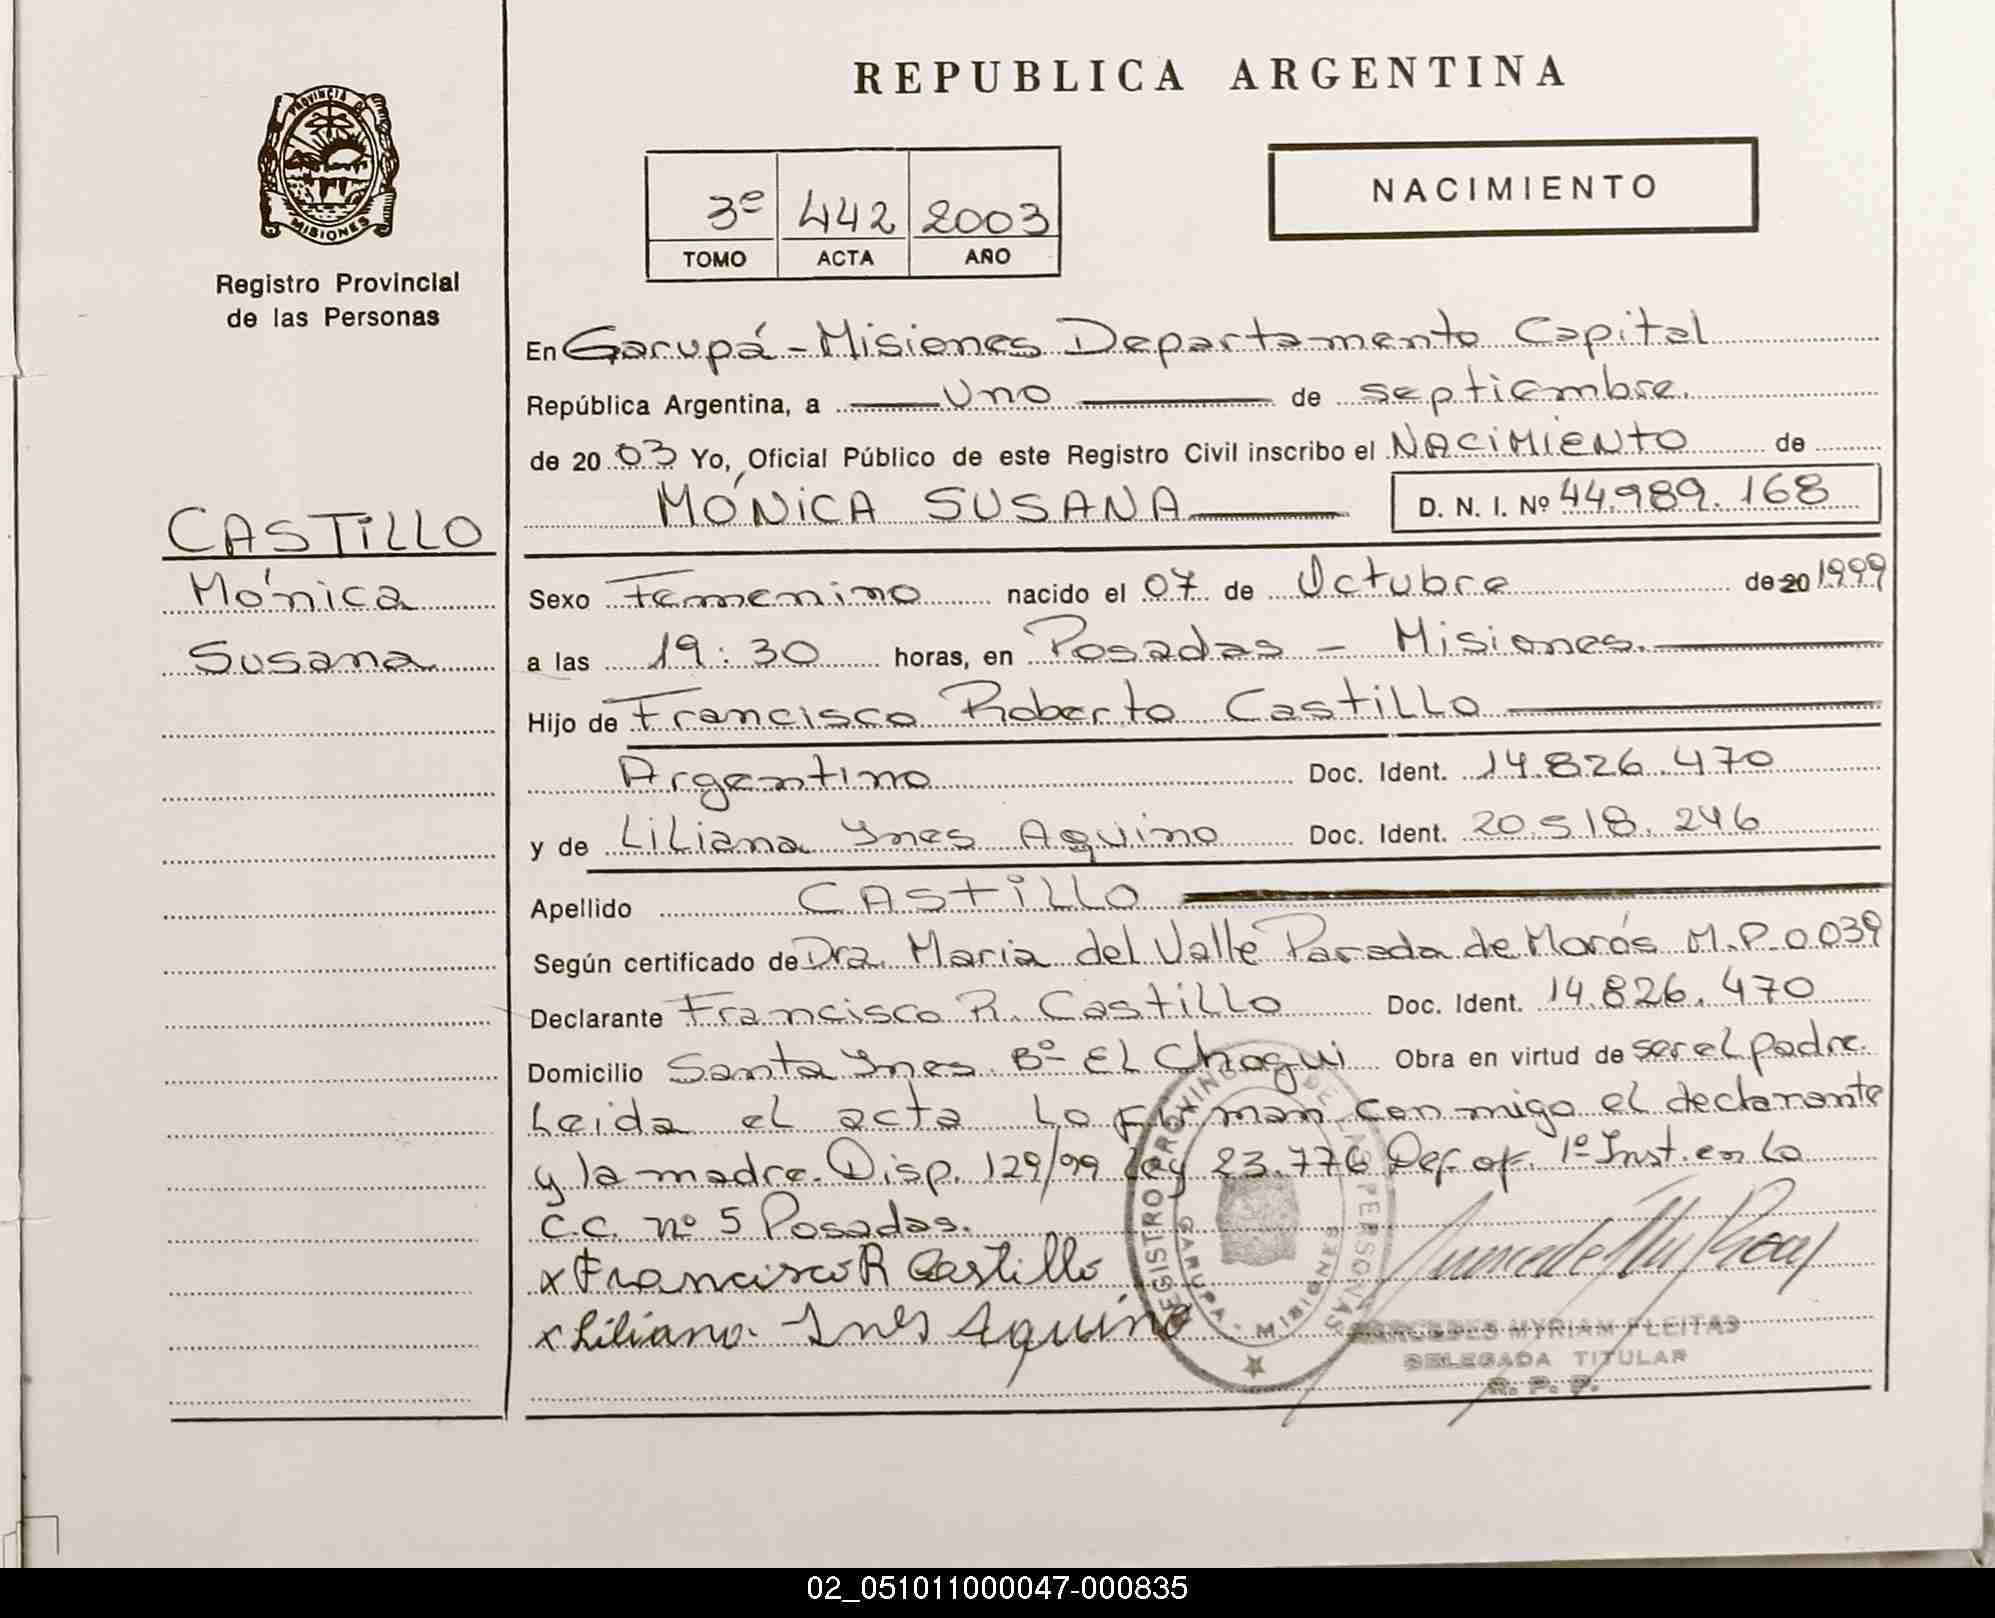 REPUBLICA ARGENTINA
PROVINCIA D
MISIONES
Registro Provincial
de las Personas
3º 442 2003
TOMO ACTA AÑO
NACIMIENTO
En Garupá - Misiones Departamento Capital
República Argentina, a uno de septiembre.
de 2003 Yo, Oficial Público de este Registro Civil inscribo el NACIMIENTO de
MÓNICA SUSANA D. N. I. Nº 44.989.168
CASTILLO
Mónica
Susana
Sexo Femenino nacido el 07 de Octubre de 20 1999
a las 19:30 horas, en Posadas - Misiones.
Hijo de Francisco Roberto Castillo
Argentino Doc. Ident. 14.826.470
y de Liliana Ynes Aquino Doc. Ident. 20.518.246
Apellido CASTILLO
Según certificado de Dra. Maria del Valle Parada de Morós M.P. 0039
Declarante Francisco R. Castillo Doc. Ident. 14.826.470
Domicilio Santa Ynes. Bº El Chogui Obra en virtud de ser el padre.
Leida el acta la firman conmigo el declarante
y la madre. Disp. 129/99 Ley 23.776 Def. of. 1º Inst. en lo
C.C. nº 5 Posadas.
x Francisco R Castillo
x Liliana Ines Aquino
REGISTRO PROVINCIAL DE LAS PERSONAS
GARUPA - MISIONES
MERCEDES MYRIAM FLEITAS
DELEGADA TITULAR
R. P. P.
02_051011000047-000835